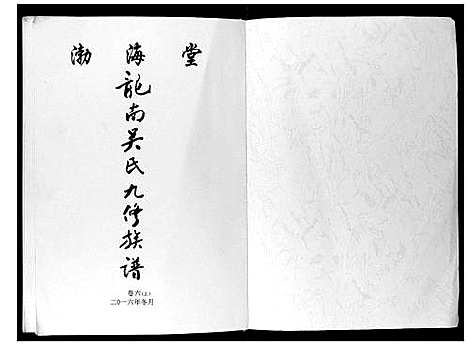 渤海堂
龍南吴氏九修族谱
卷六(上)
二○一六年冬月